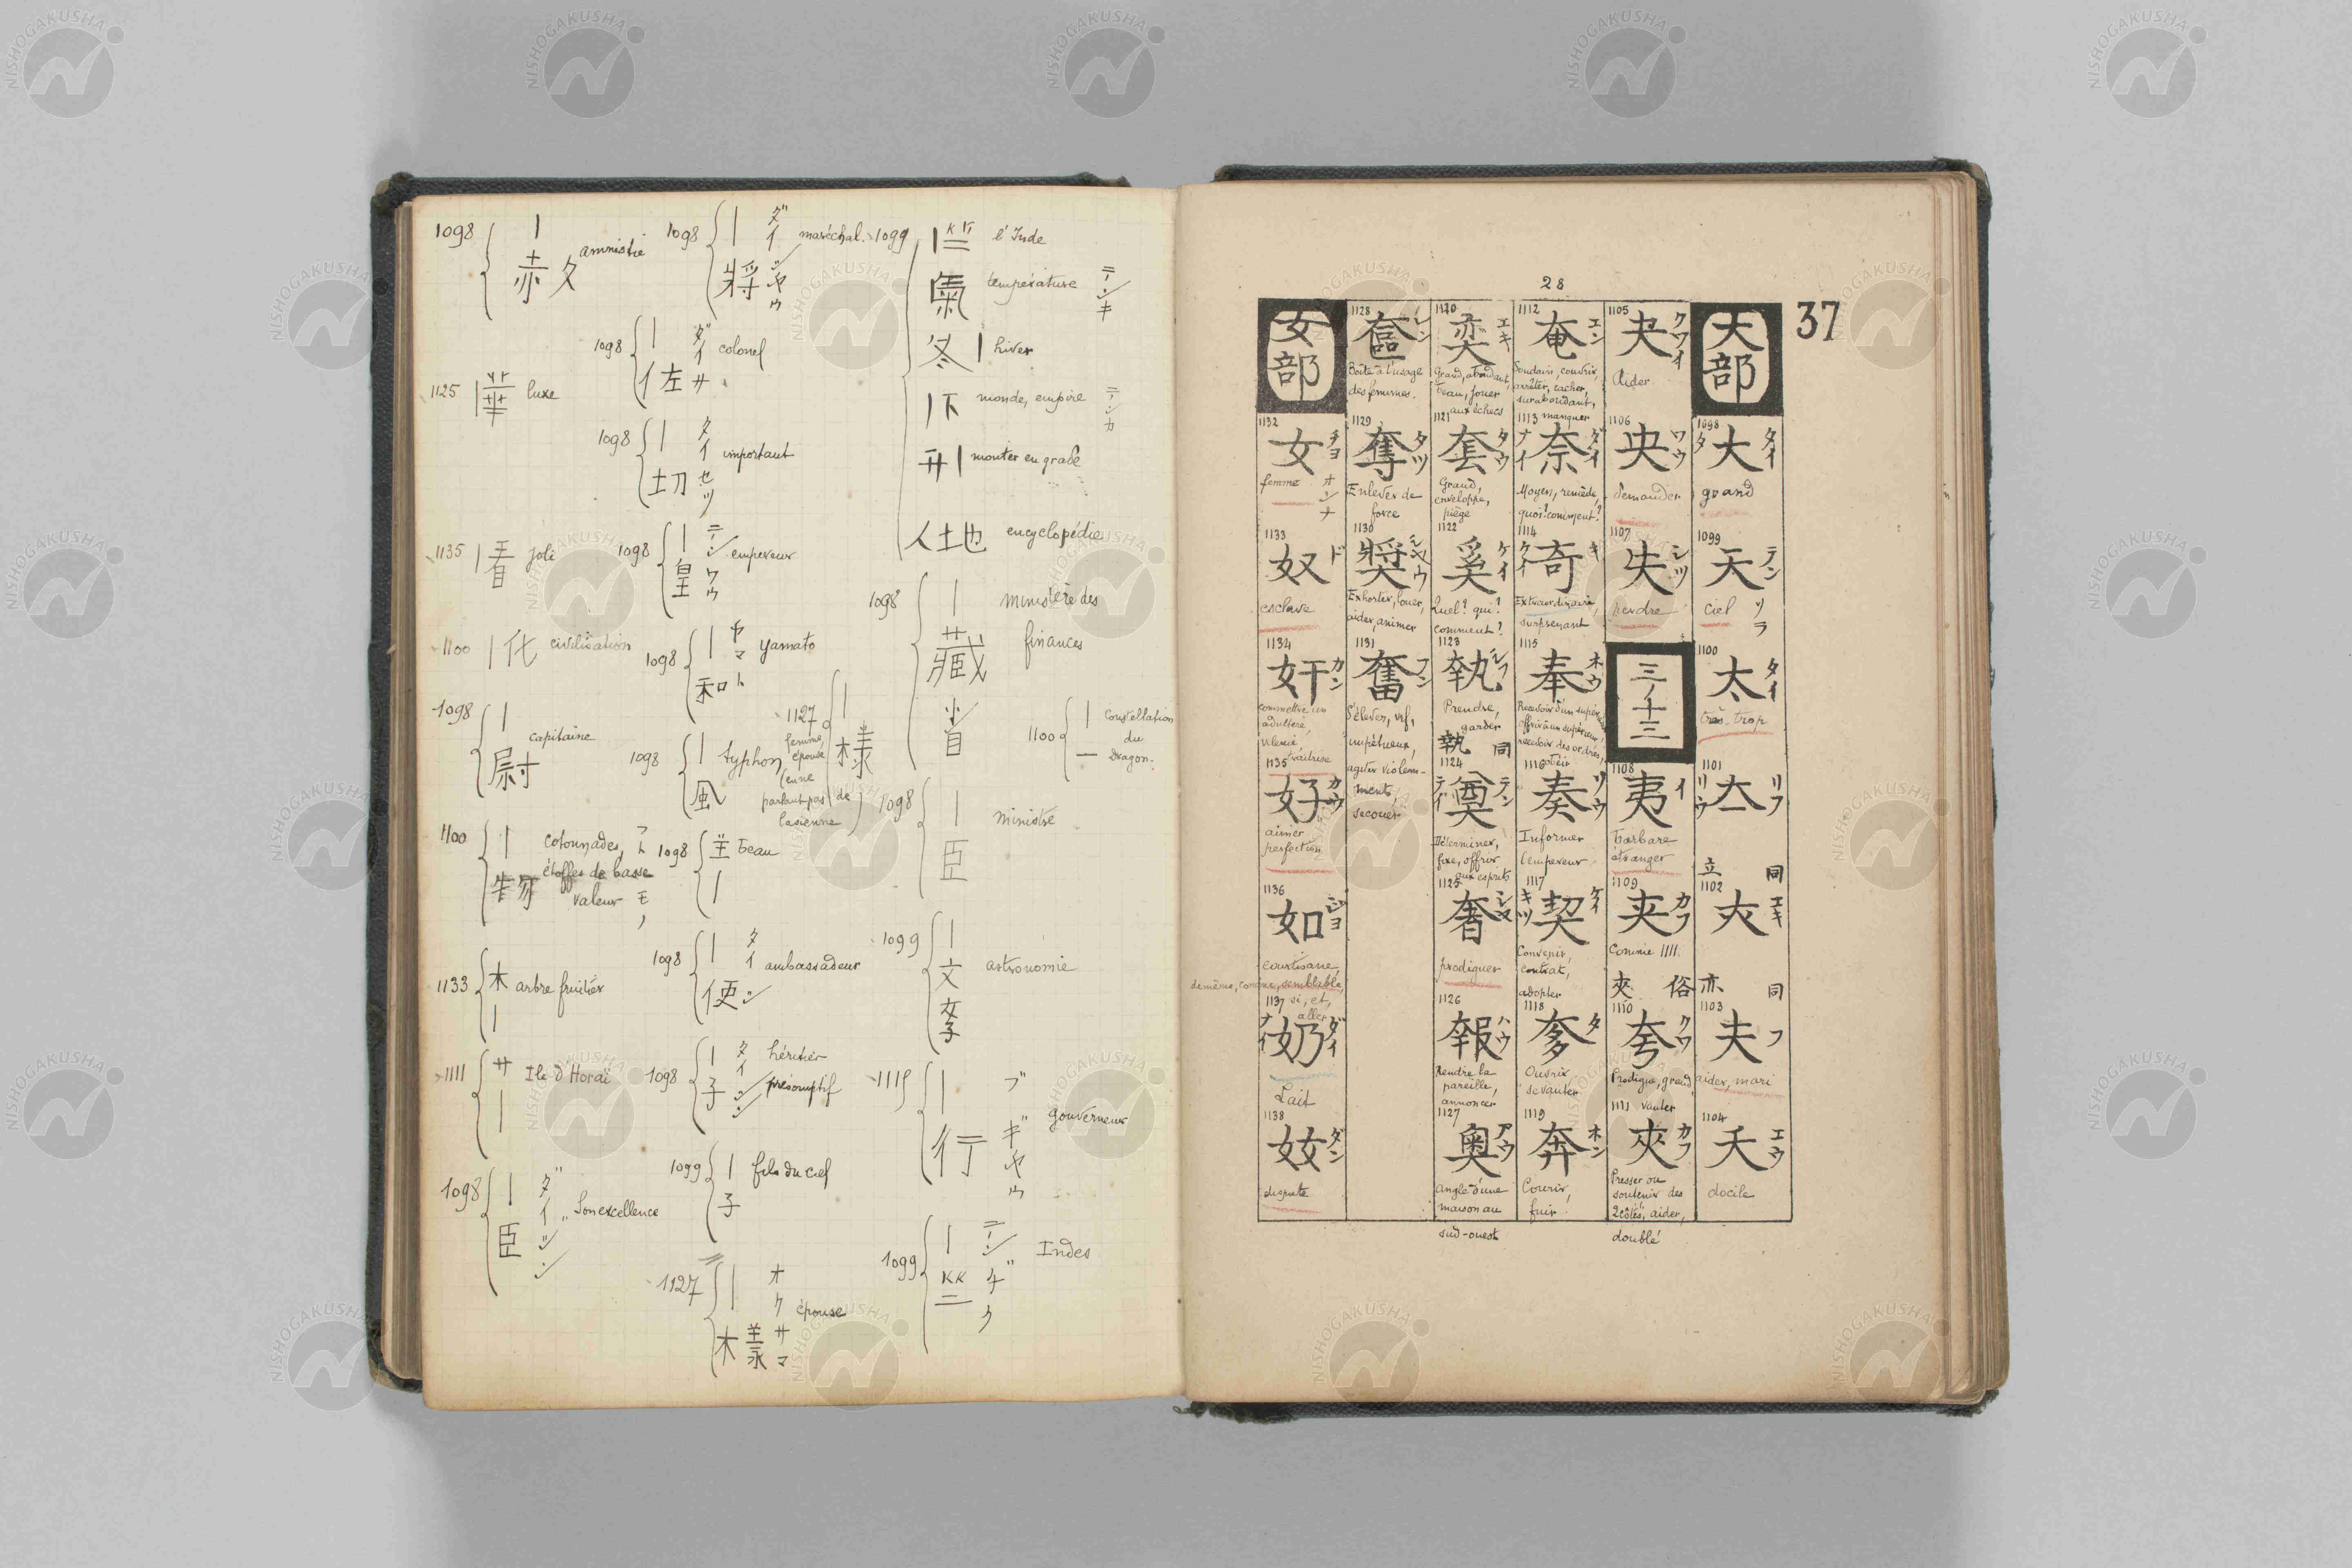 1098 | 赦 amnistie
1125 | 華 luxe
1135 | 看 joli
1100 | 化 civilisation
1098 | 尉 capitaine
1100 | 物 cotonnades, étoffes de basse valeur フトモノ
1133 木 | arbre fruitier
1111 サ | Ile d'Horaï
1098 | 臣 ダイジン Son excellence
1098 | 将 ダイシヤウ maréchal
1098 | 佐 ダイサ colonel
1098 | 切 タイセツ important
1098 | 皇 テンワウ empereur
1098 | 和 ヤマト Yamato
1098 | 風 typhon
1127 | 様 femme, épouse (en ne parlant pas de la sienne)
1098 美 | beau
1098 | 使 タイシ ambassadeur
1098 | 子 タイシ héritier présomptif
1099 | 子 fils du ciel
1127 | 様 オクサマ épouse
1099 | 竺 l'Inde
| 氣 température テンキ
冬 | hiver
| 下 monde, empire テンカ
升 | monter en grade
人 地 encyclopédie
1098 | 藏 省 ministère des finances
1100 | 一 Constellation du Dragon.
1098 | 臣 ministre
1099 | 文 学 astronomie
1115 | 行 ブギヤウ gouverneur
1099 | 竺 テンヂク Indes
28
37
大部
1098 大 タイ タ
grand
1099 天 テン
ciel ソラ
1100 太 タイ
très, trop
1101 亣 リフ リウ
立 同
1102 亦 エキ
亦 同
1103 夫 フ
aider, mari
1104 夭 エウ
docile
1105 夬 クワイ
Aider
1106 央 ワウ
demander
1107 失 シツ
perdre
三ノ十三
1108 夷 イ
barbare
étranger
1109 夹 カフ
Comme 1111.
夾 俗
1110 夸 クワ
Prodigue, grand
vanter
1111 夾 カフ
Presser ou
soutenir des
2 côtés, aider,
doublé
1112 奄 エン
Soudain, couvrir,
arrêter, cacher,
surabondant,
manquer
1113 奈 ダイ ナイ
Moyen, remède,
quoi? comment?
1114 奇 キ
Extraordinaire,
surprenant
1115 奉 ホウ
Recevoir d'un supérieur,
offrir à un supérieur,
recevoir des ordres,
obéir
1116 奏 ソウ
Informer
l'empereur
1117 契 ケイ キツ
Convenir,
contrat,
adopter
1118 奓 タ
Ouvrir,
se vanter
1119 奔 ホン
Courir,
fuir
1120 奕 エキ
Grand, abondant,
beau, jouer
aux échecs
1121 套 タウ
Grand,
enveloppe,
piège
1122 奚 ケイ
Quel? qui?
comment?
1123 執 シフ
Prendre,
garder
執 同
1124 奠 テン テイ
Déterminer,
fixe, offrir
aux esprits
1125 奢 シヤ
prodiguer
1126 報 ハウ
Rendre la
pareille,
annoncer
1127 奧 アウ
Angle d'une
maison au
sud-ouest
1128 奩 レン
Boîte à l'usage
des femmes.
1129 奪 タツ
Enlever de
force
1130 奬 シヤウ
Exhorter, louer,
aider, animer
1131 奮 フン
S'élever, vif,
impétueux,
agiter violem-
ment,
secouer
女部
1132 女 チヨ
femme オンナ
1133 奴 ド
esclave
1134 奸 カン
commettre un
adultère,
vilenie,
traîtrise
1135 好 カウ
aimer
perfection
1136 如 ジヨ
courtisane,
de même, comme, semblable,
si, et,
aller
1137 奶 ダイ ナイ
Lait
1138 奻 ダン
dispute